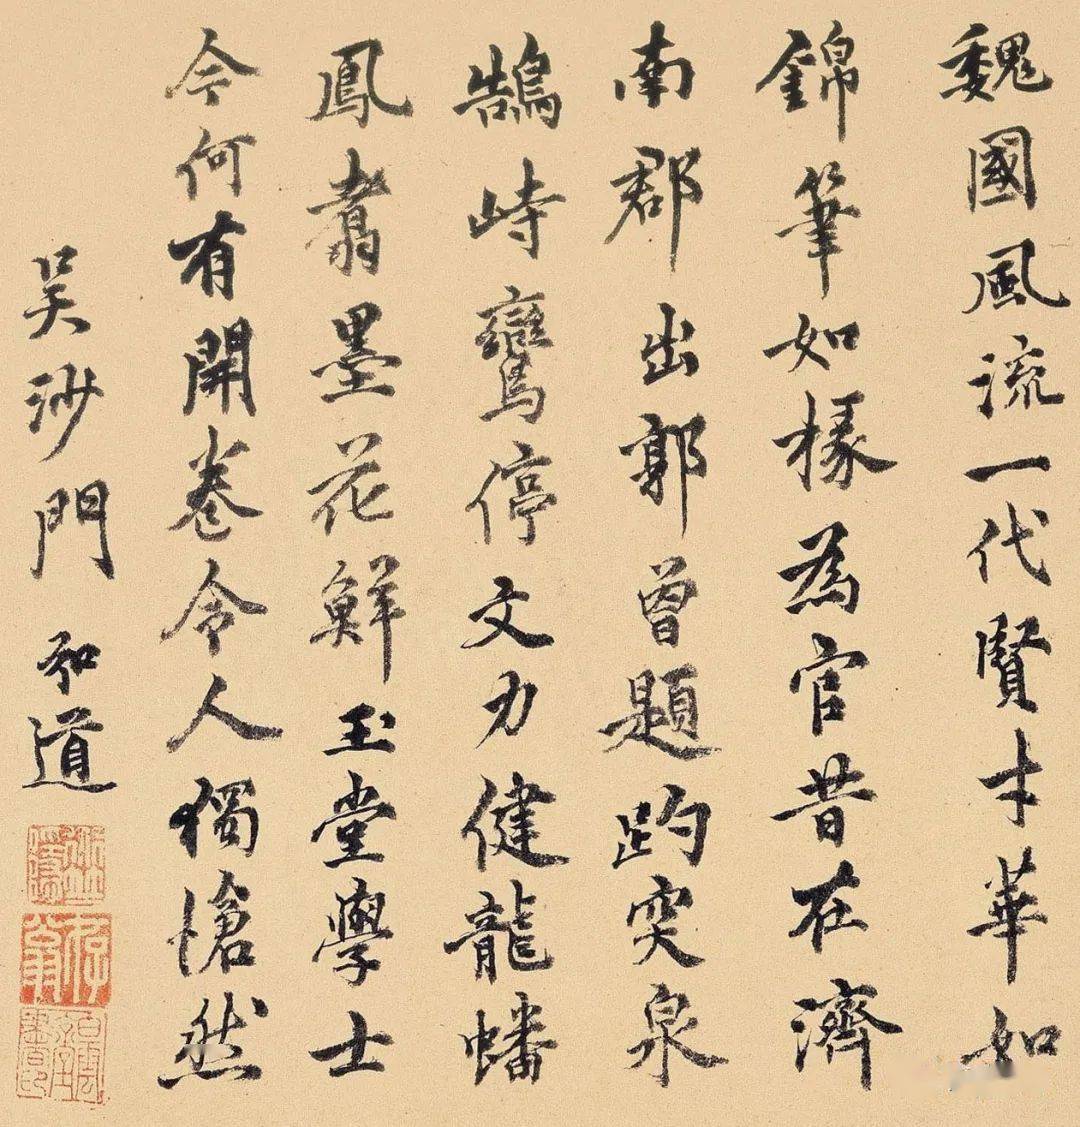 魏國風流一代賢才華如
錦筆如椽為官昔在濟
南郡出郭曾題趵突泉
鵠峙鸞停文力健龍蟠
鳳翥墨花鮮玉堂學士
今何有開卷令人獨愴然
吴沙門 弘道